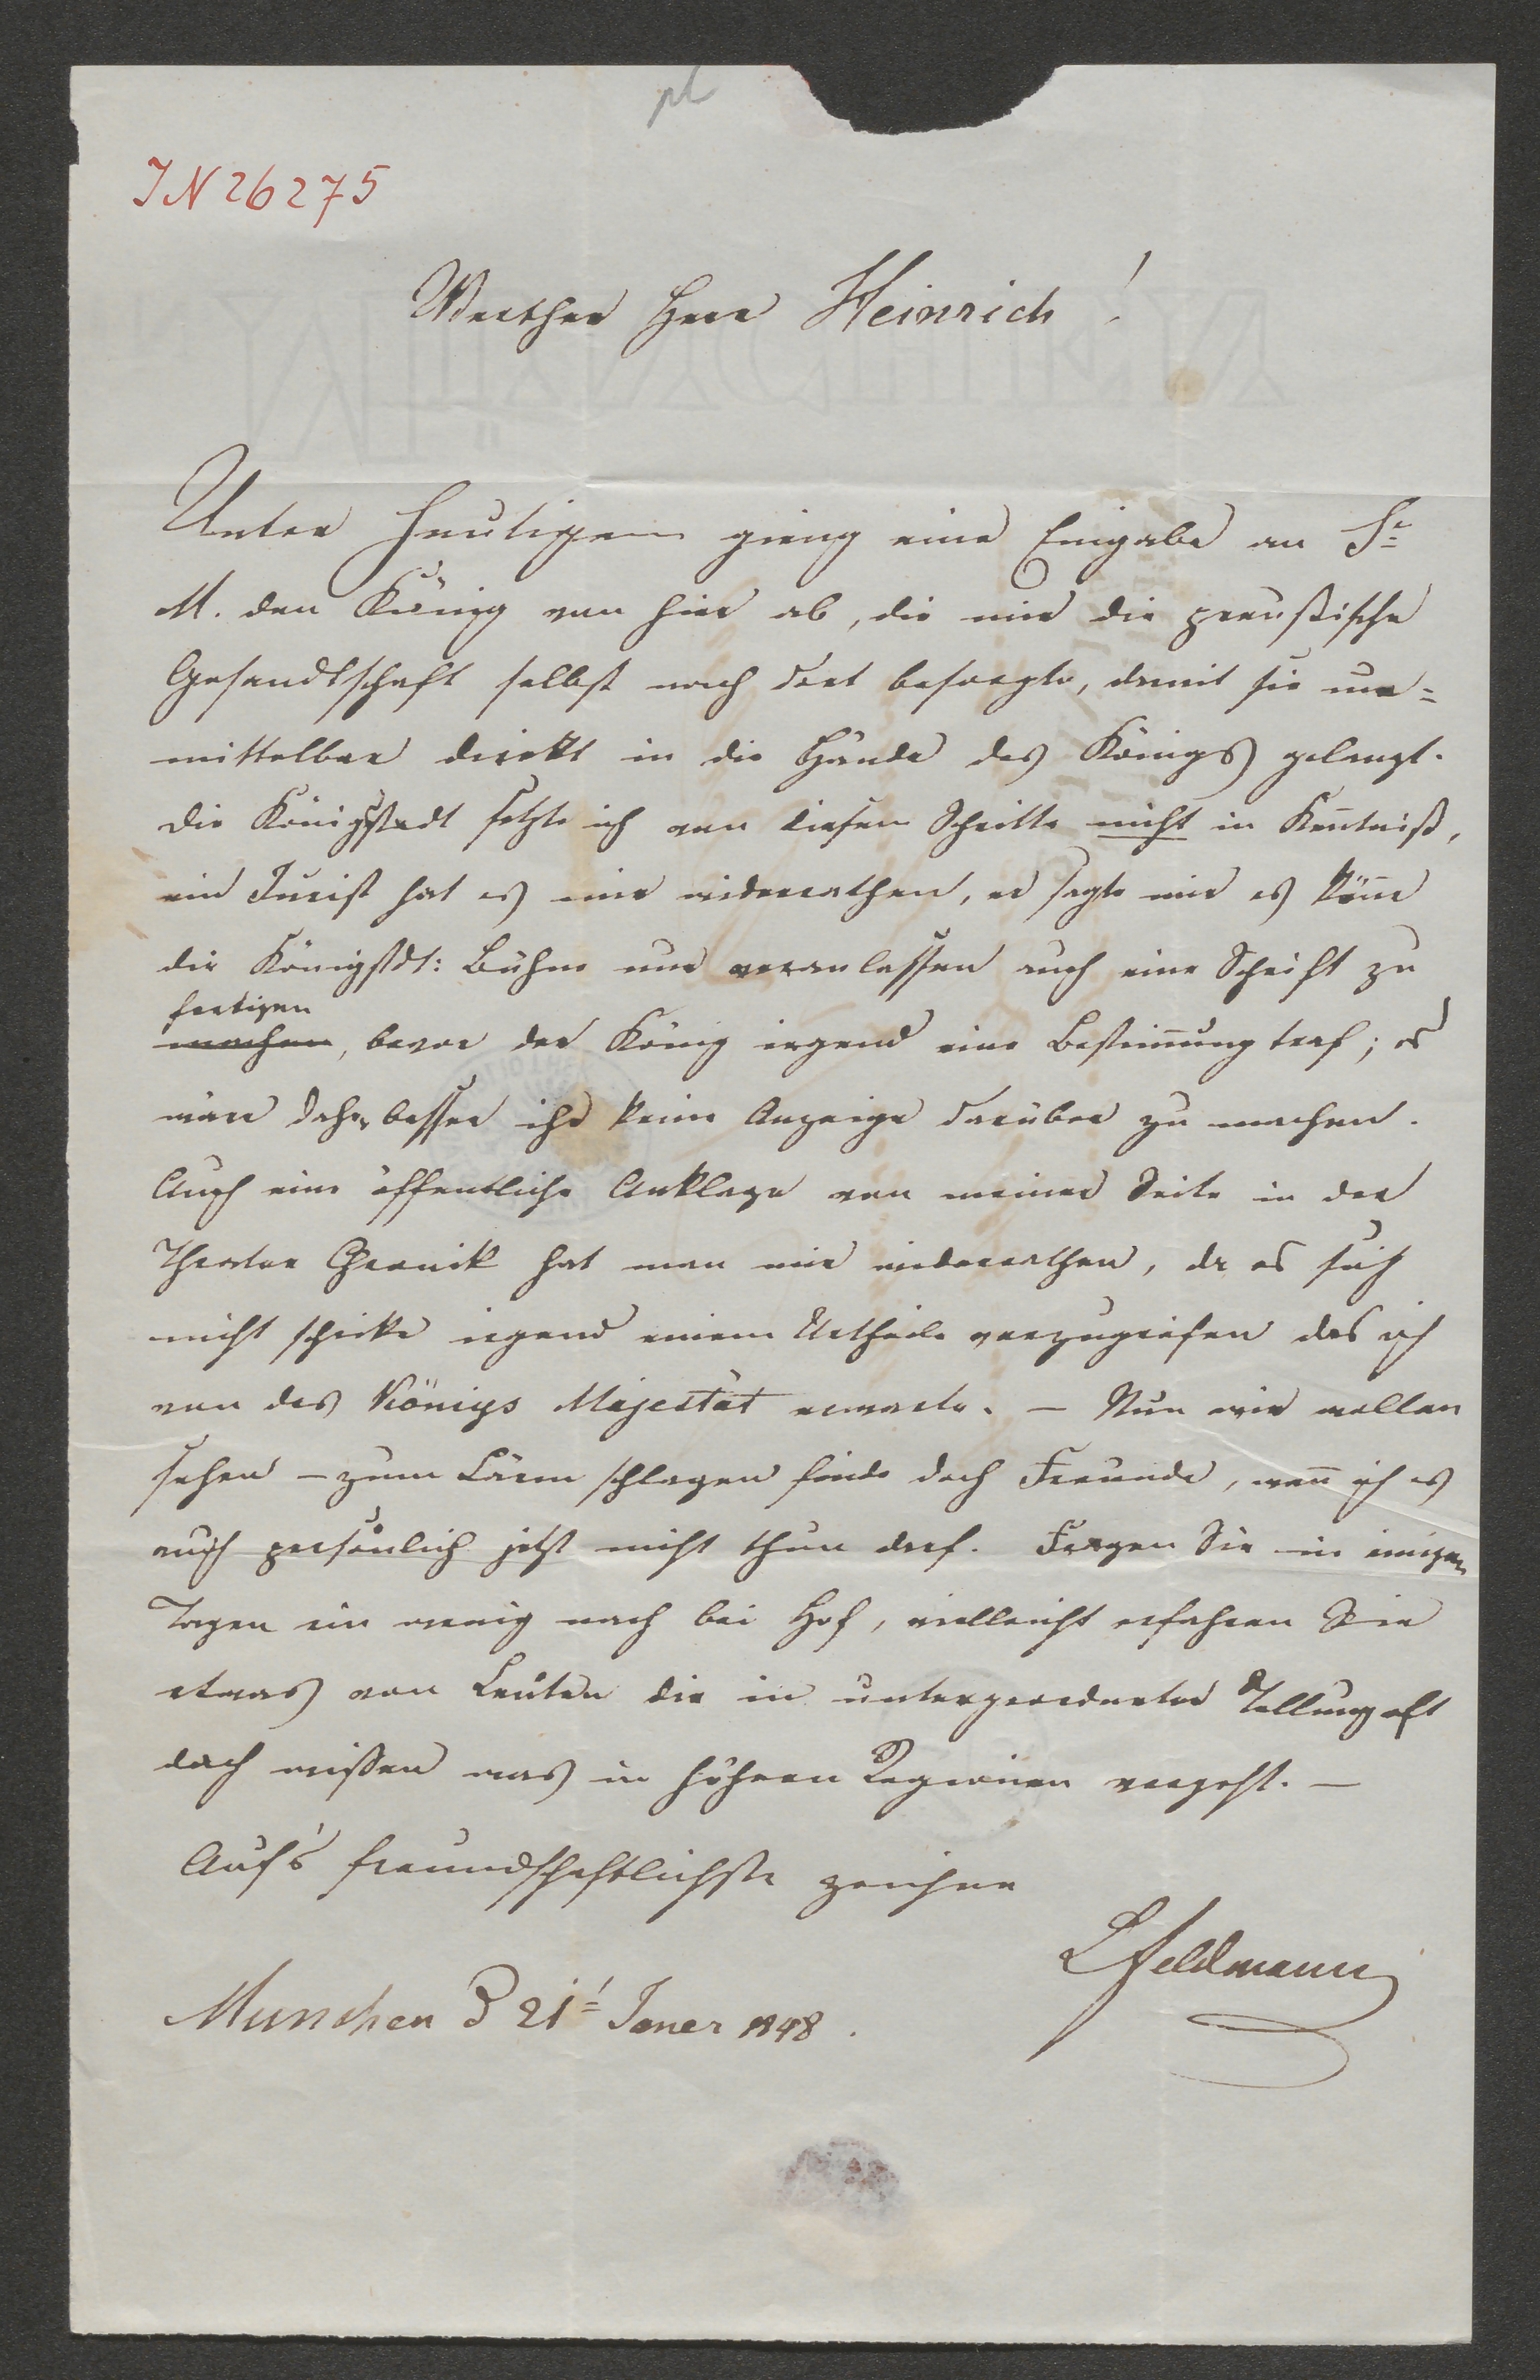 pl
IN 26275
Werther Herr Heinrich!
Unter Heutigem gieng eine Eingabe an Sr.
M. den König von hier ab, die mir die preußische
Gesandtschaft selbst nach dort besorgte, damit sie un=
mittelbar direkt in die Hände des Königs gelangt.
Die Königstadt setzte ich von diesem Schritte nicht in Kentniß,
ein Jurist hat es mir widerrathen, er sagte mir es könne
die Königstdt: Bühne nur veranlassen auch eine Schrift zu
fertigen
machen, bevor der König irgend eine Bestimung traf; es
wäre daher besser ihr keine Anzeige darüber zu machen.
Auch eine öffentliche Anklage von meiner Seite in der
Theater Chronik hat man mir widerrathen, da es sich
nicht schicke irgend einem Urtheile vorzugreifen das ich
von des Königs Majestät erwarte. — Nun wir wollen
sehen — zum Lärm schlagen finde doch Freunde, wenn ich es
auch persönlich jetzt nicht thun darf. Fragen Sie in einigen
Tagen ein wenig nach bei Hof, vielleicht erfahren Sie
etwas von Leuten die in untergeordneter Stellung oft
doch wissen was in höhern Regionen vorgeht. —
Auf's freundschaftlichste zeichne
LFeldmann
München d 21t Jener 1848.